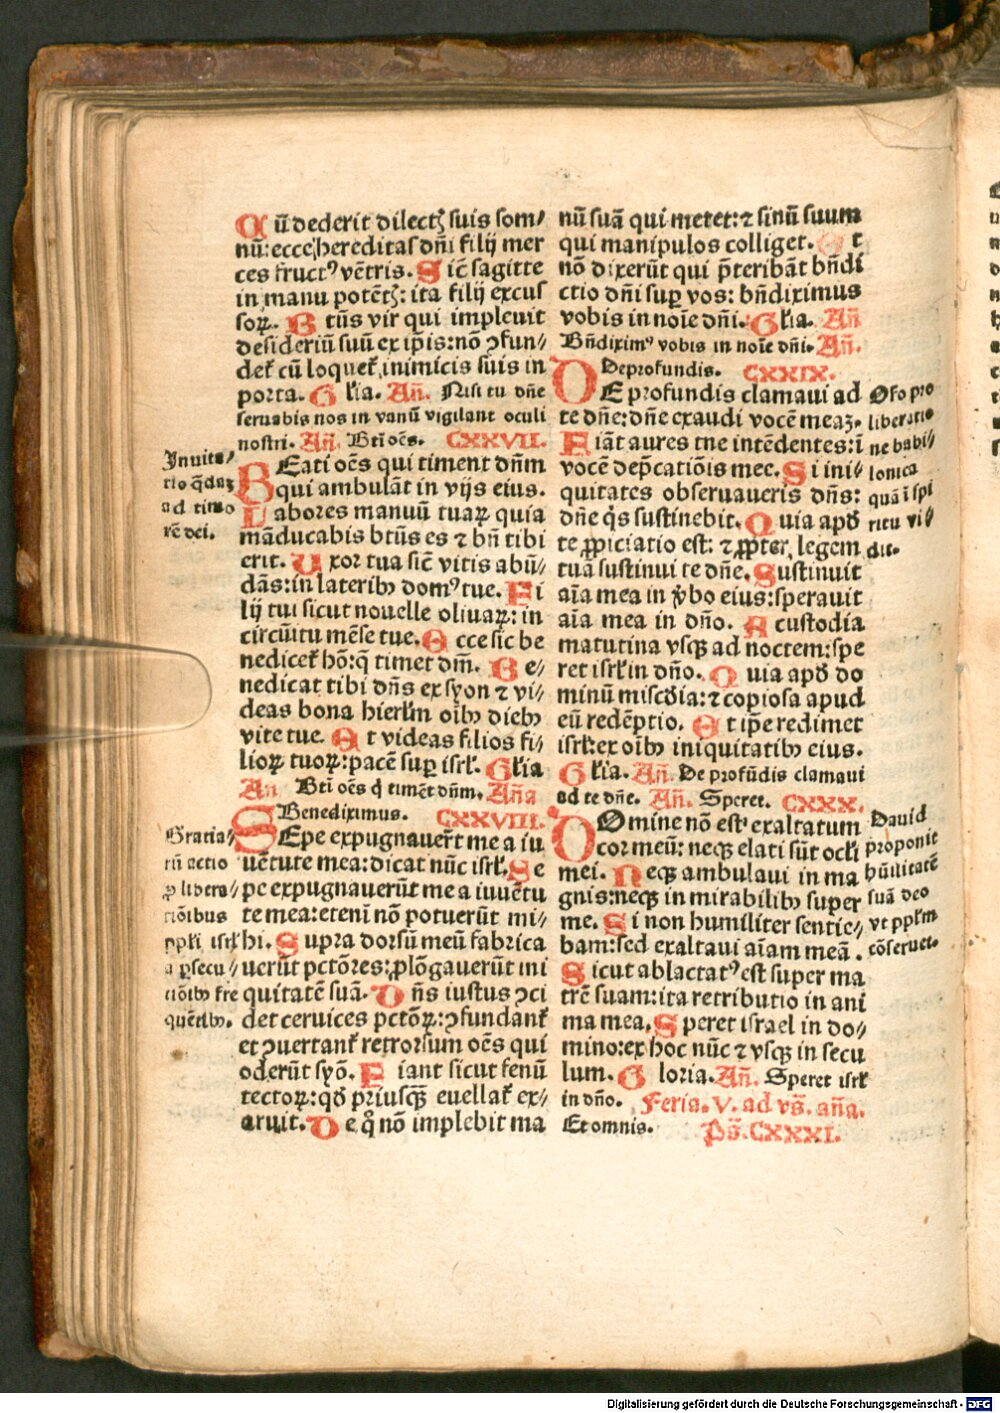 Cū dederit dilectꝫ suis som⸗
nū: ecce hereditas dñi filij mer
ces fructꝰ vētris. Sic̄ sagitte
in manu potētꝫ: ita filij excus
soꝝ. Btūs vir qui impleuit
desideriū suū ex ip̄is: nō ꝯfun⸗
det᷑ cū loquet᷑ inimicis suis in
porta. Gl̄ia. Añ. Nisi tu dn̄e
seruabis nos in vanū vigilant oculi
nostri. Añ. Bt̄i oēs. CXXVII.
Inuita⸗
tio q̄daꝫ
ad timo
rē dei.
BEati oēs qui timent dn̄m
qui ambulāt in vijs eius.
Labores manuū tuaꝝ quia
māducabis btūs es ⁊ bn̄ tibi
erit. Uxor tua sic̄ vitis abū⸗
dās: in laterib⁹ domꝰ tue. Fi
lij tui sicut nouelle oliuaꝝ: in
circūitu mēse tue. Ecce sic be
nedicet᷑ hō: q̄ timet dm̄. Be⸗
nedicat tibi dn̄s ex syon ⁊ vi⸗
deas bona hierl̄m oīb⁹ dieb⁹
vite tue. Et videas filios fi⸗
lioꝝ tuoꝝ: pacē suꝑ isrl̄. Gl̄ia
Añ Bt̄i oēs q̄ timēt dn̄m. Aña
Benediximus. CXXVIII.
Gratia⸗
rū actio
ꝓ libera⸗
tiōibus
ppl̄i isrl̄
a ꝑsecu⸗
tiōib⁹ fre
quētib⁹.
SEpe expugnauer̄t me a iu
uētute mea: dicat nūc isrl̄. Se
pe expugnauerūt me a iuuētu
te mea: eteni nō potuerūt mi⸗
hi. Supra dorsū meū fabrica
uerūt pctōres: ꝓlōgauerūt ini
quitatē suā. Dn̄s iustus ꝯci
det ceruices pctōꝝ: ꝯfundant᷑
et ꝯuertant᷑ retrorsum oēs qui
oderūt syō. Fiant sicut fenū
tectoꝝ: qđ priusqꝫ euellat᷑ ex⸗
aruit. De q̊ nō implebit ma
nū suā qui metet: ⁊ sinū suum
qui manipulos colliget. Et
nō dixerūt qui p̄teribāt bn̄di
ctio dn̄i suꝑ vos: bn̄diximus
vobis in noīe dn̄i. Gl̄ia. Añ
Bn̄diximꝰ vobis in noīe dn̄i. Añ.
Deprofundis. CXXIX.
DE profundis clamaui ad
te dn̄e: dn̄e exaudi vocē meaꝫ.
Fiāt aures tue intēdentes: ī
vocē dep̄catiōis mee. Si ini⸗
quitates obseruaueris dn̄s:
dn̄e q̄s sustinebit. Quia apđ
te ꝓpiciatio est: ⁊ ꝓpter legem
tuā sustinui te dn̄e. Sustinuit
aīa mea in v̄bo eius: sperauit
aīa mea in dn̄o. A custodia
matutina vsqꝫ ad noctem: spe
ret isrl̄ in dn̄o. Quia apđ do
minū misc̄dia: ⁊ copiosa apud
eū redēptio. Et ip̄e redimet
isrl̄ ex oīb⁹ iniquitatib⁹ eius.
Gl̄ia. Añ. De profūdis clamaui
ad te dn̄e. Añ. Speret. CXXX.
Or̄o pro
liberatio
ne babi⸗
lonica
quā ī spi
ritu vi⸗
dit.
DOmine nō est exaltatum
cor meū: neqꝫ elati sūt ocl̄i
mei. Neqꝫ ambulaui in ma
gnis: neqꝫ in mirabilib⁹ super
me. Si non humiliter sentie⸗
bam: sed exaltaui aīam meā.
Sicut ablactatꝰ est super ma
trē suam: ita retributio in ani
ma mea. Speret israel in do⸗
mino: ex hoc nūc ⁊ vsqꝫ in secu
lum. Gloria. Añ. Speret isrl̄
in dn̄o. Feria. V. ad vs̄. aña.
Et omnis. Ps̄. CXXXI.
Dauid
proponit
hūilitatē
suā deo
vt ppl̄m
cōseruet.
Digitalisierung gefördert durch die Deutsche Forschungsgemeinschaft - DFG